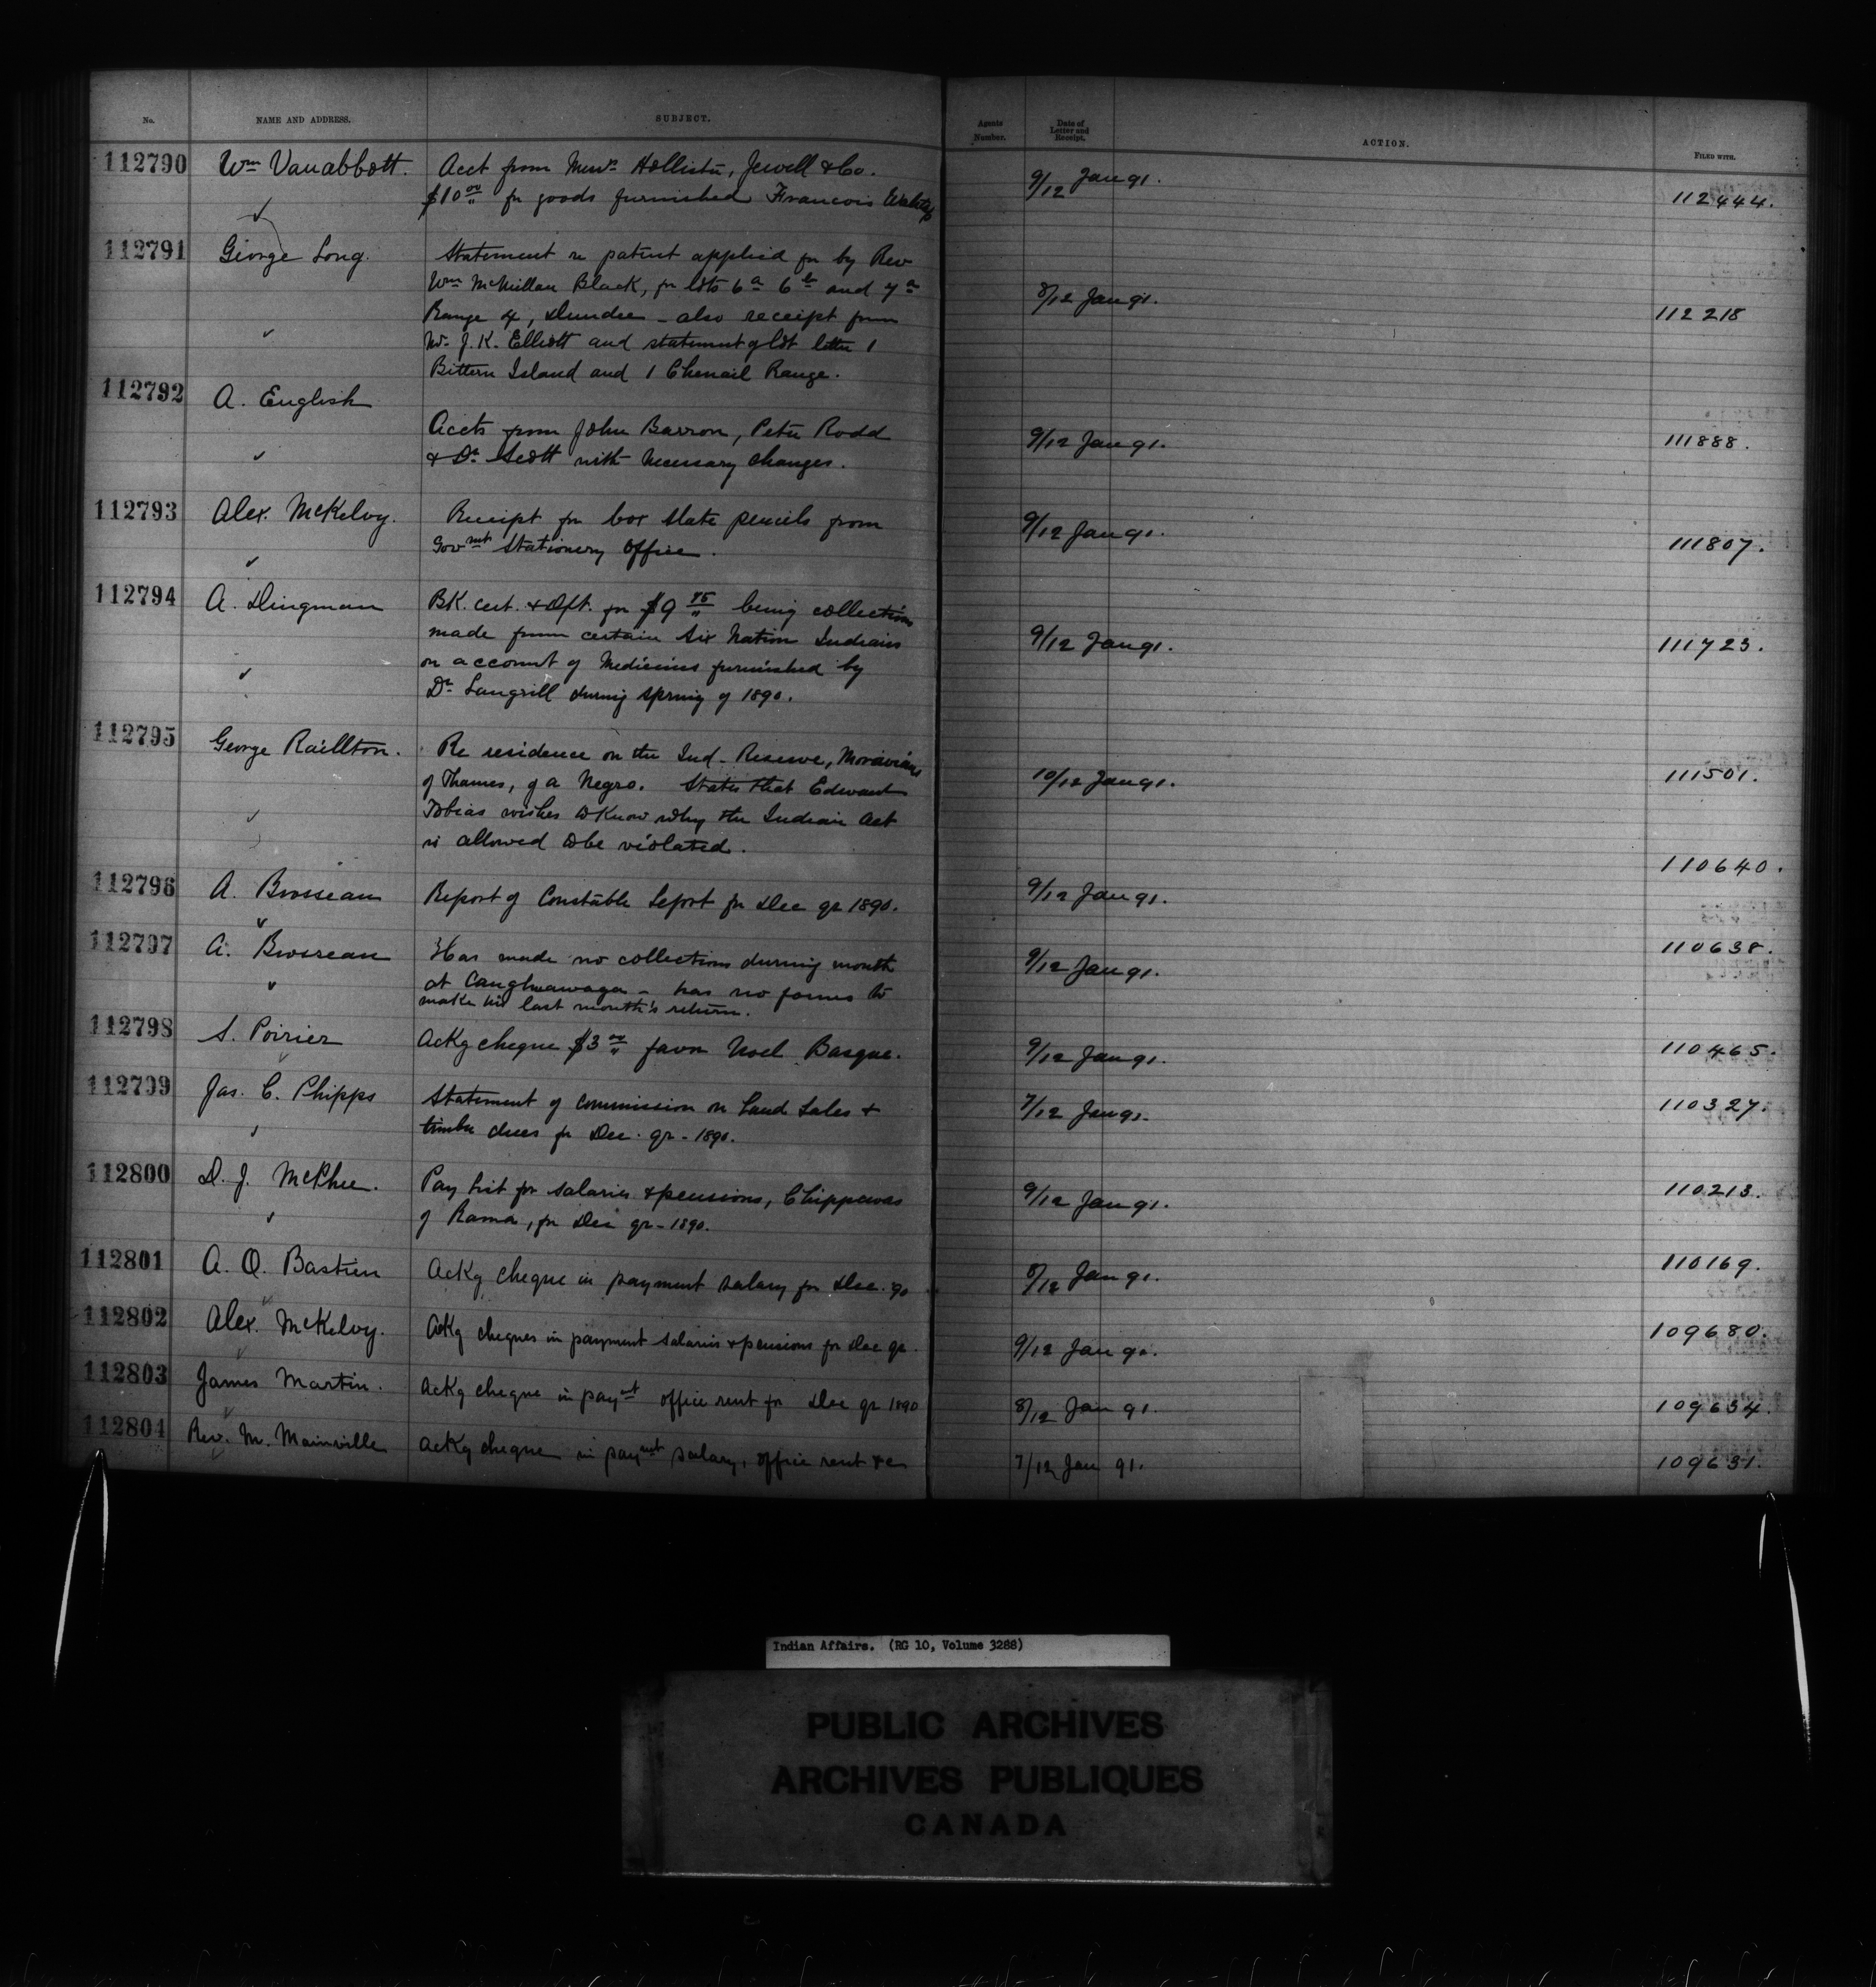 No. NAME AND ADDRESS. SUBJECT. Agents Number. Date of Letter and Receipt. ACTION. FILED WITH.
112790 Wm Vanabbott. Acct from Messrs Hollister, Jewell & Co. 9/12 Jan 91. 112444.
$10 00/" for goods furnished Francois
112791 George Long. Statement re patent applied for by Rev 8/12 Jan 91. 112218
Wm McMillan Black, for lots 6a 6b and 7a
Range 4, Dundee - also receipt from
Mr. J. K. Elliott and statement of lot letter 1
Bittern Island and 1 Chenail Range.
112792 A. English
Accts from John Barron, Peter Rodd 9/12 Jan 91. 111888.
& Dr. Scott with necessary changes.
112793 Alex. McKelvy. Receipt for box slate pencils from 9/12 Jan 91. 111807.
Govmt Stationery Office.
112794 A. Dingman BK. cert. & Dft. for $9 75/" being collections 9/12 Jan 91. 111723.
made from certain Six Nation Indians
on account of Medicines furnished by
Dr. Langrill during spring of 1890.
112795 George Raillton. Re residence on the Ind. Reserve, Moravians 10/12 Jan 91. 111501.
of Thames, of a Negro. States that Edward
Tobias wishes to know why the Indian Act
is allowed to be violated.
112796 A. Brosseau Report of Constable Lefort for Dec qr 1890. 9/12 Jan 91. 110640.
112797 A. Brosseau Has made no collections during month 9/12 Jan 91. 110638.
at Caughnawaga - has no forms to
make his last month's return.
112798 S. Poirier Ackg cheque $3 00/" favor Noel Basque. 9/12 Jan 91. 110465.
112799 Jas. C. Phipps Statement of commission on Land Sales & 7/12 Jan 91. 110327.
timber dues for Dec. qr - 1890.
112800 D. J. McPhee. Pay list for salaries & pensions, Chippewas 9/12 Jan 91. 110213.
of Rama, for Dec qr - 1890.
112801 A. O. Bastien Ackg cheque in payment salary for Dec. 90 8/12 Jan 91. 110169.
112802 Alex. McKelvy. Ackg cheques in payment salaries & pensions for Dec qr. 9/12 Jan 91. 109680.
112803 James Martin. Ackg cheque in payt office rent for Dec qr 1890 8/12 Jan 91. 109634.
112804 Rev. M. Mainville Ackg cheque in paymt salary, office rent &c 7/12 Jan 91. 109631.
Indian Affairs. (RG 10, Volume 3288)
PUBLIC ARCHIVES
ARCHIVES PUBLIQUES
CANADA